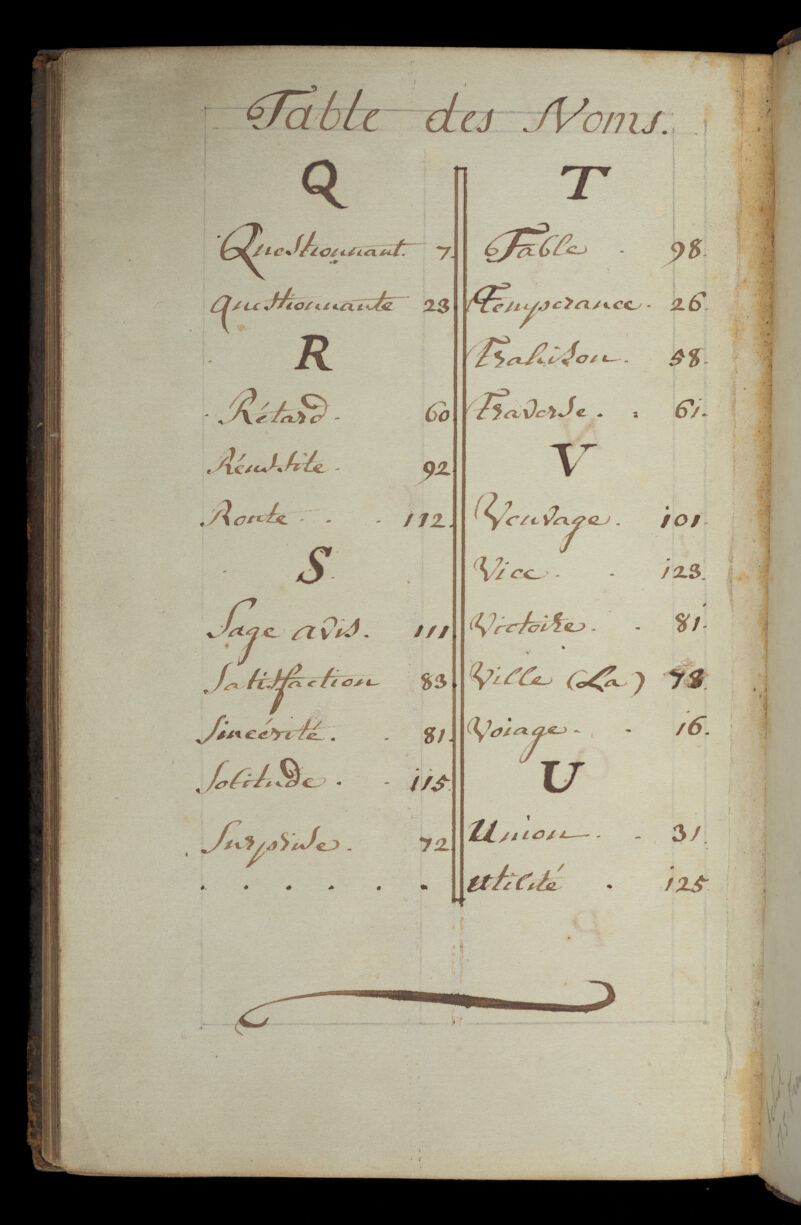 Table des Noms.
Q
Questionnant. 7.
questionnante 23.
R
Rétard. 60
Réussite. 92
Route . . . 112.
S
Sage avis. 111
Satisfaction 83.
Sincérité. . 81.
Solitude . . 115
Surprise. 72
. . . . . .
T
Table . 98.
Temperance. 26.
Trahison. 58.
Traverse. : 61.
V
Veuvage. 101.
Vice . . 123.
Victoire. . 81.
Ville (La) 73.
Voiage. . 16.
U
Union. . 31.
utilité . 125